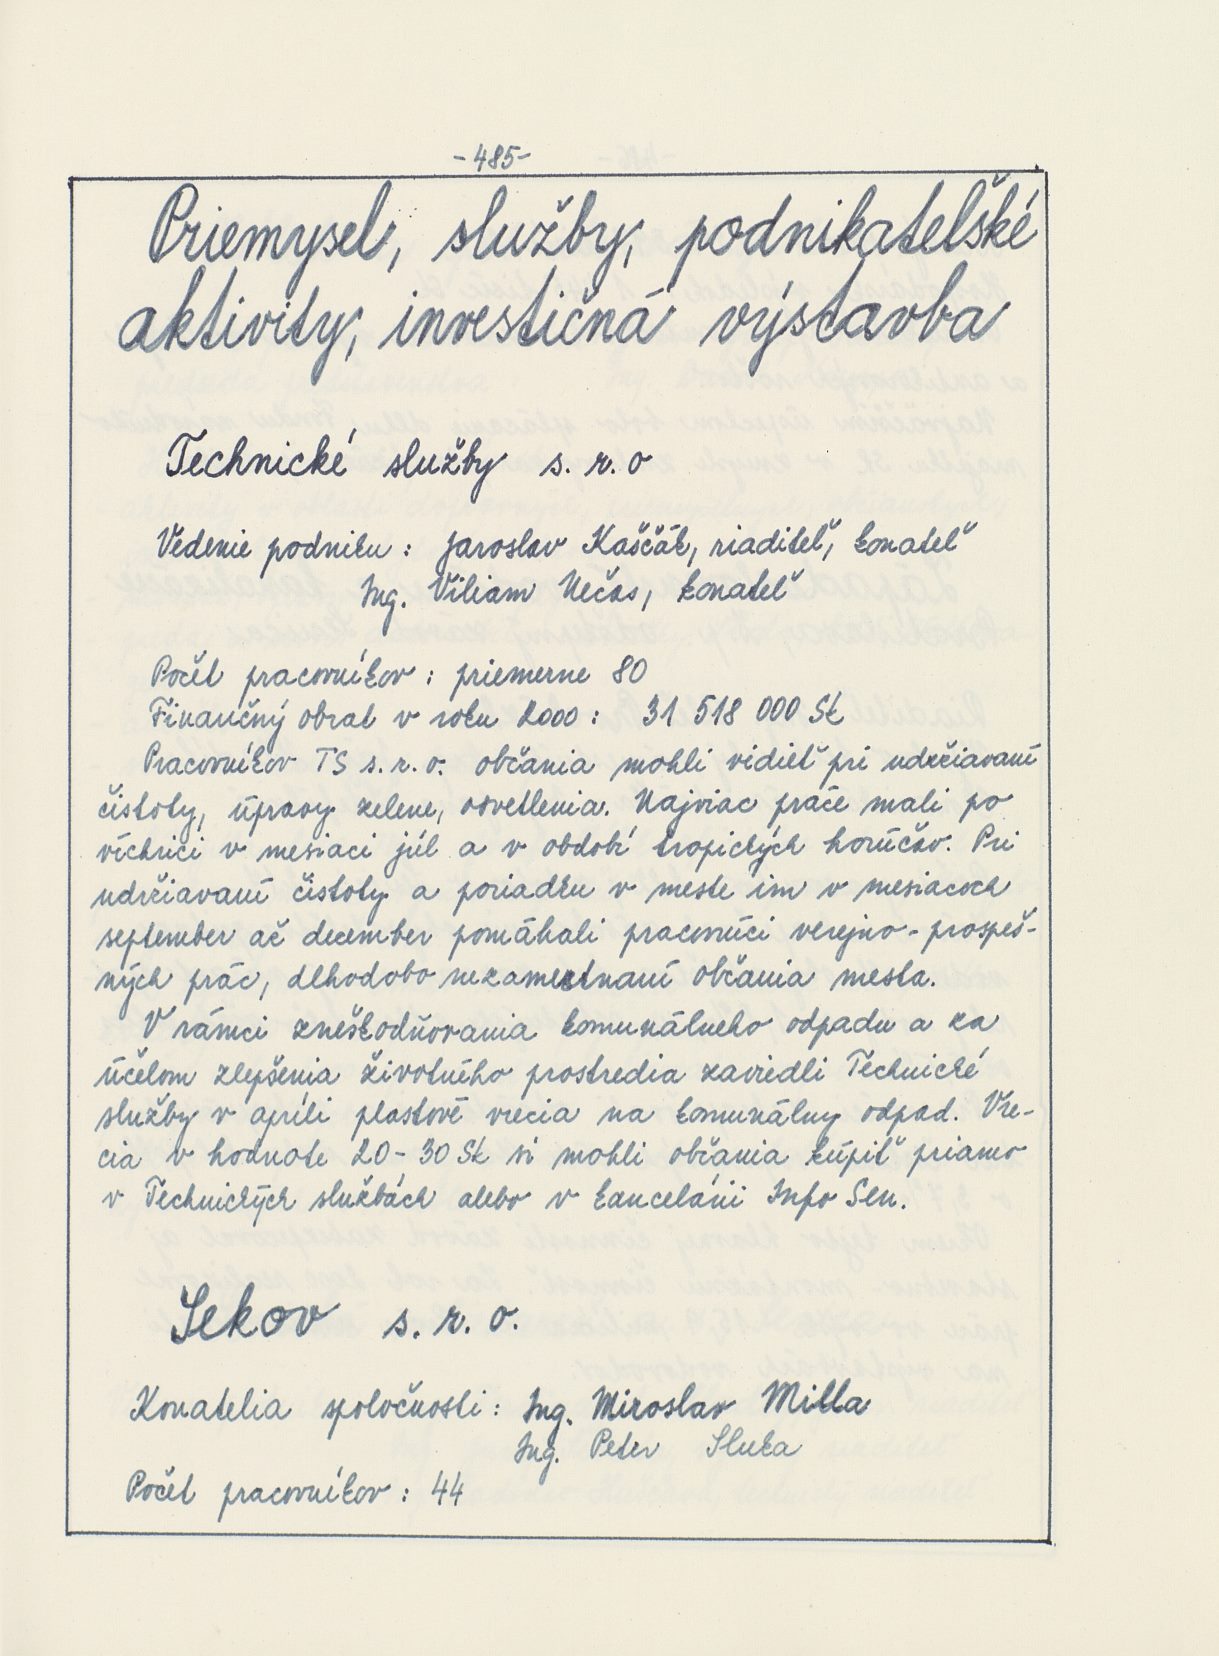 -485-
Priemysel, služby, podnikateľské
aktivity, investičná výstavba
Technické služby s. r. o
Vedenie podniku: Jaroslav Kaščák, riaditeľ, konateľ
Ing. Viliam Nečas, konateľ
Počet pracovníkov: priemerne 80
Finančný obrat v roku 2000: 31 518 000 Sk
Pracovníkov TS s. r. o. občania mohli vidieť pri udržiavaní
čistoty, úpravy zelene, osvetlenia. Najviac práce mali po
víchrici v mesiaci júl a v období tropických horúčav. Pri
udržiavaní čistoty a poriadku v meste im v mesiacoch
september až december pomáhali pracovníci verejno-prospeš-
ných prác, dlhodobo nezamestnaní občania mesta.
V rámci zneškodňovania komunálneho odpadu a za
účelom zlepšenia životného prostredia zaviedli Technické
služby v apríli plastové vrecia na komunálny odpad. Vre-
cia v hodnote 20-30 Sk si mohli občania kúpiť priamo
v Technických službách alebo v kancelárii Info Sen.
Sekov s. r. o.
Konatelia spoločnosti: Ing. Miroslav Milla
Ing. Peter Sluka
Počet pracovníkov: 44